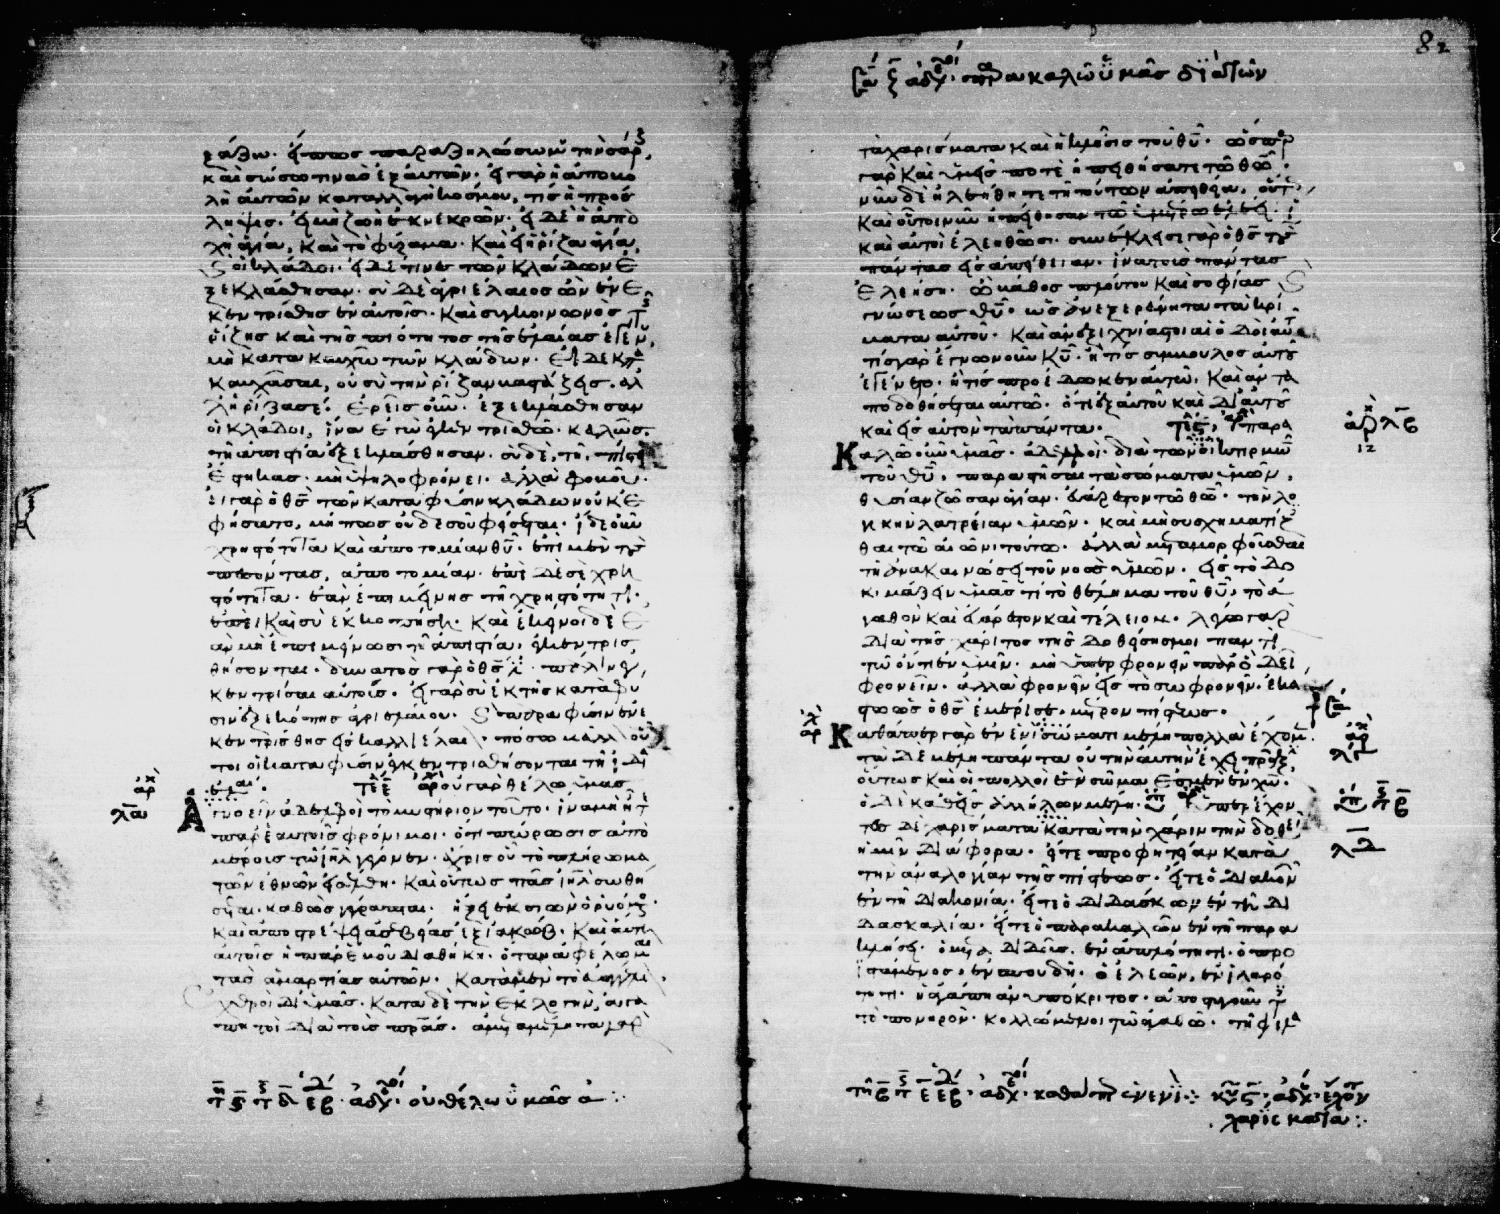 ξάσω. εἴπως παραζηλώσω μου τὴν σάρκα,
καὶ σώσω τινὰς ἐξ αὐτῶν. εἰ γὰρ ἡ ἀποβο
λὴ αὐτῶν καταλλαγὴ κόσμου, τίς ἡ πρόσ
ληψις. εἰ μὴ ζωὴ ἐκ νεκρῶν. εἰ δὲ ἡ ἀπαρ
χὴ ἁγία, καὶ τὸ φύραμα. καὶ εἰ ἡ ῥίζα ἁγία,
καὶ οἱ κλάδοι. εἰ δέ τινες τῶν κλάδων ἐ
ξεκλάσθησαν. σὺ δὲ ἀγριέλαιος ὢν ἐνε
κεντρίσθης ἐν αὐτοῖς. καὶ συγκοινωνὸς τῆς
ῥίζης καὶ τῆς πιότητος τῆς ἐλαίας ἐγένου,
μὴ κατακαυχῶ τῶν κλάδων. εἰ δὲ κατα
καυχᾶσαι, οὐ σὺ τὴν ῥίζαν βαστάζεις. ἀλ
λ' ἡ ῥίζα σέ. ἐρεῖς οὖν. ἐξεκλάσθησαν
οἱ κλάδοι, ἵνα ἐγὼ ἐγκεντρισθῶ. καλῶς.
τῇ ἀπιστίᾳ ἐξεκλάσθησαν. σὺ δὲ, τῇ πίστει
ἕστηκας. μὴ ὑψηλοφρόνει. ἀλλὰ φοβοῦ.
εἰ γὰρ ὁ θς τῶν κατὰ φύσιν κλάδων οὐκ ἐ
φείσατο, μή πως οὐδὲ σοῦ φείσεται. ἴδε οὖν
χρηστότητα καὶ ἀποτομίαν θυ. ἐπὶ μὲν τοὺς
πεσόντας, ἀποτομίαν. ἐπὶ δὲ σὲ χρη
στότητα. ἐὰν ἐπιμείνῃς τῇ χρηστότητι.
ἐπεὶ καὶ σὺ ἐκκοπήσῃ. καὶ ἐκεῖνοι δὲ ἐ
ὰν μὴ ἐπιμείνωσι τῇ ἀπιστίᾳ, ἐγκεντρισ
θήσονται. δυνατὸς γὰρ ὁ θς πάλιν ἐγ
κεντρίσαι αὐτούς. εἰ γὰρ σὺ ἐκ τῆς κατὰ φύ
σιν ἐξεκόπης ἀγριελαίου. καὶ παρὰ φύσιν ἐνε
κεντρίσθης εἰς καλλιέλαιον. πόσῳ μᾶλλον οὗ
τοι οἱ κατὰ φύσιν ἐγκεντρισθήσονται τῇ ἰδίᾳ
ἐλαίᾳ. οὐ γὰρ θέλω ὑμᾶς
ἀγνοεῖν ἀδελφοὶ τὸ μυστήριον τοῦτο. ἵνα μὴ ἦτε
παρ' ἑαυτοῖς φρόνιμοι. ὅτι πώρωσις ἀπὸ
μέρους τῷ ιηλ γέγονεν. ἄχρις οὗ τὸ πλήρωμα
τῶν ἐθνῶν εἰσέλθῃ. καὶ οὕτως πᾶς ιηλ σωθή
σεται. καθὼς γέγραπται. ἥξει ἐκ σιὼν ὁ ῥυόμενος.
καὶ ἀποστρέψει ἀσεβείας ἐξ ἰακώβ. καὶ αὕτη
αὐτοῖς ἡ παρ' ἐμοῦ διαθήκη. ὅταν ἀφέλωμαι
τὰς ἁμαρτίας αὐτῶν. κατὰ μὲν τὸ εὐαγγέλιον
ἐχθροὶ δι' ὑμᾶς. κατὰ δὲ τὴν ἐκλογὴν, ἀγα
πητοὶ διὰ τοὺς πρας. ἀμεταμέλητα γὰρ
οὐ θέλω ὑμᾶς ἀ
82
παρακαλῶ ὑμᾶς διὰ τῶν
τὰ χαρίσματα καὶ ἡ κλῆσις τοῦ θυ. ὥσπερ
γὰρ καὶ ὑμεῖς ποτὲ ἠπειθήσατε τῷ θω.
νῦν δὲ ἠλεήθητε τῇ τούτων ἀπειθείᾳ, οὕτω
καὶ οὗτοι νῦν ἠπείθησαν τῷ ὑμετέρῳ ἐλέει. ἵνα
καὶ αὐτοὶ ἐλεηθῶσι. συνέκλεισε γὰρ ὁ θς τοὺς
πάντας εἰς ἀπείθειαν. ἵνα τοὺς πάντας
ἐλεήσῃ. ὢ βάθος πλούτου καὶ σοφίας καὶ
γνώσεως θυ. ὡς ἀνεξερεύνητα τὰ κρί
ματα αὐτοῦ. καὶ ἀνεξιχνίαστοι αἱ ὁδοὶ αὐτοῦ.
τίς γὰρ ἔγνω νοῦν κυ. ἢ τίς σύμβουλος αὐτοῦ
ἐγένετο. ἢ τίς προέδωκεν αὐτῷ. καὶ ἀντα
ποδοθήσεται αὐτῷ. ὅτι ἐξ αὐτοῦ καὶ δι' αὐτοῦ
καὶ εἰς αὐτὸν τὰ πάντα. παρα
καλῶ οὖν ὑμᾶς. ἀδελφοὶ. διὰ τῶν οἰκτιρμῶν
τοῦ θυ. παραστῆσαι τὰ σώματα ὑμῶν.
θυσίαν ζῶσαν ἁγίαν. εὐάρεστον τῷ θω. τὴν λο
γικὴν λατρείαν ὑμῶν. καὶ μὴ συσχηματίζεσ
θαι τῷ αἰῶνι τούτῳ. ἀλλὰ μεταμορφοῦσθαι
τῇ ἀνακαινώσει τοῦ νοὸς ὑμῶν. εἰς τὸ δο
κιμάζειν ὑμᾶς τί τὸ θέλημα τοῦ θυ. τὸ ἀ
γαθὸν καὶ εὐάρεστον καὶ τέλειον. λέγω γὰρ
διὰ τῆς χάριτος τῆς δοθείσης μοι παντὶ
τῷ ὄντι ἐν ὑμῖν. μὴ ὑπερφρονεῖν παρ' ὃ δεῖ
φρονεῖν. ἀλλὰ φρονεῖν εἰς τὸ σωφρονεῖν. ἑκά
στῳ ὡς ὁ θς ἐμέρισε μέτρον πίστεως.
καθάπερ γὰρ ἐν ἑνὶ σώματι μέλη πολλὰ ἔχομεν.
τὰ δὲ μέλη πάντα οὐ τὴν αὐτὴν ἔχει πρᾶξιν,
οὕτως καὶ οἱ πολλοὶ ἓν σῶμα ἐσμὲν ἐν χω.
ὁ δὲ καθεῖς ἀλλήλων μέλη. ἔχον
τες δὲ χαρίσματα κατὰ τὴν χάριν τὴν δοθεῖσαν
ἡμῖν διάφορα. εἴτε προφητείαν κατὰ
τὴν ἀναλογίαν τῆς πίστεως. εἴτε διακονίαν
ἐν τῇ διακονίᾳ. εἴτε ὁ διδάσκων ἐν τῇ δι
δασκαλίᾳ. εἴτε ὁ παρακαλῶν ἐν τῇ παρα
κλήσει. ὁ μεταδιδοὺς, ἐν ἁπλότητι. ὁ προ
ϊστάμενος, ἐν σπουδῇ. ὁ ἐλεῶν, ἐν ἱλαρό
τητι. ἡ ἀγάπη ἀνυπόκριτος. ἀποστυγοῦντες
τὸ πονηρὸν. κολλώμενοι τῷ ἀγαθῷ. τῇ φιλα
καθάπερ ἐν ἑνὶ